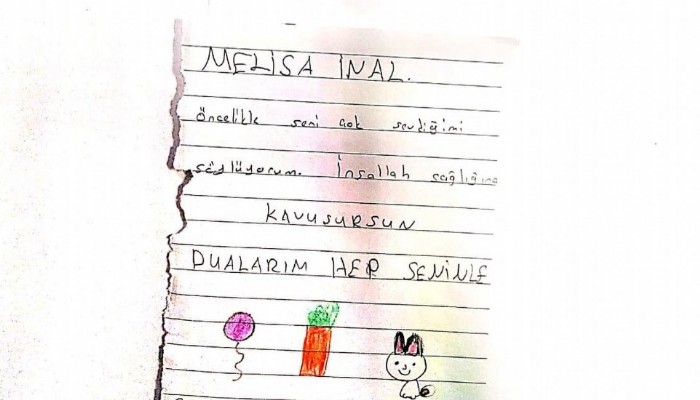 MELİSA İNAL.
öncelikle seni çok sevdiğimi
söylüyorum. İnşallah sağlığına
KAVUŞURSUN
DUALARIM HEP SENİNLE